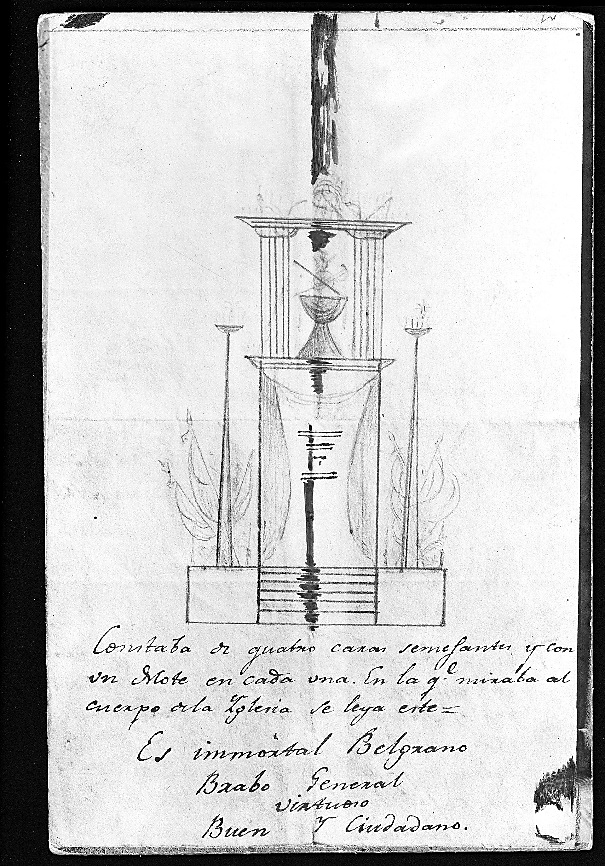 Constaba de quatro caras semejantes, y con
un Mote en cada una. En la q.e miraba al
cuerpo de la Iglesia se leya este=
Es immortal Belgrano
Brabo General
virtuoso
Buen Y Ciudadano.